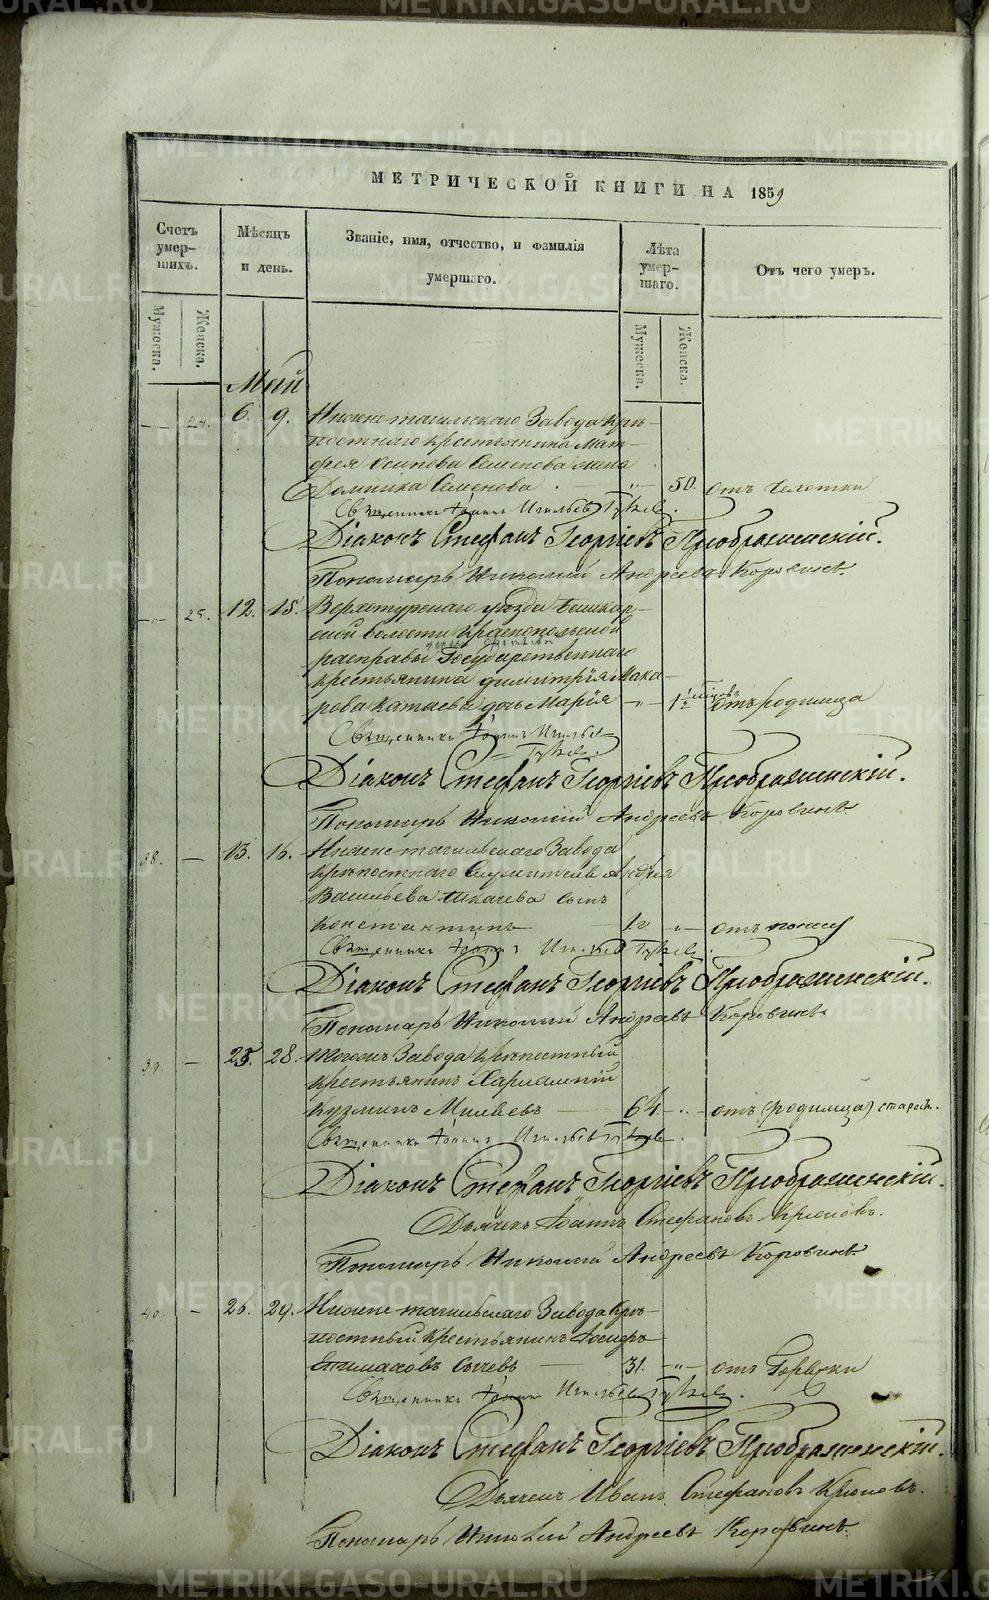 МЕТРИЧЕСКОЙ КНИГИ НА 1859
Счетъ умер-шихъ.
Мѣсяцъ и день.
Званіе, имя, отчество, и фамилія умершаго.
Лѣта умер-шаго.
Отъ чего умеръ.
Мужеска. Женска.
Мужеска. Женска.
Май
24. 6. 9. Нижнетагильскаго Завода крѣ-
постнаго крестьянина Мат-
фея Осипова Семенова жена
Домника Семенова — „ — 50. отъ чахотки
Священникъ Іоаннъ
Діаконъ Стефанъ Георгіевъ Преображенскій.
Пономарь Николай Андреевъ Коровинъ.
25. 12. 15. Верхотурскаго уѣзда
волости Краснопольской
расправы Государственнаго
крестьянина Димитрія Мака-
рова Катаева дочь Марія — „ — 1 1/2 отъ родимца
Священникъ Іоаннъ
Діаконъ Стефанъ Георгіевъ Преображенскій.
Пономарь Николай Андреевъ Коровинъ.
38. — 13. 16. Нижнетагильскаго Завода
крѣпостнаго Андрея
Васильева сынъ
Константинъ „ — отъ поносу
Священникъ Іоаннъ
Діаконъ Стефанъ Георгіевъ Преображенскій.
Пономарь Николай Андреевъ Коровинъ
39. — 25. 28. Завода крѣпостный
крестьянинъ Харлампій
Кузминъ — 64 — „ отъ (родимца) старости.
Священникъ Іоаннъ
Діаконъ Стефанъ Георгіевъ Преображенскій.
Дьячекъ Іоаннъ Стефановъ Крюковъ.
Пономарь Николай Андреевъ Коровинъ
40. — 26. 29. Нижнетагильскаго Завода крѣ-
постный крестьянинъ
Сычевъ — 31. — „ — отъ Горячки
Священникъ Іоаннъ
Діаконъ Стефанъ Георгіевъ Преображенскій.
Дьячекъ Иванъ Стефановъ Крюковъ.
Пономарь Николай Андреевъ Коровинъ.
METRIKI.GASO-URAL.RU